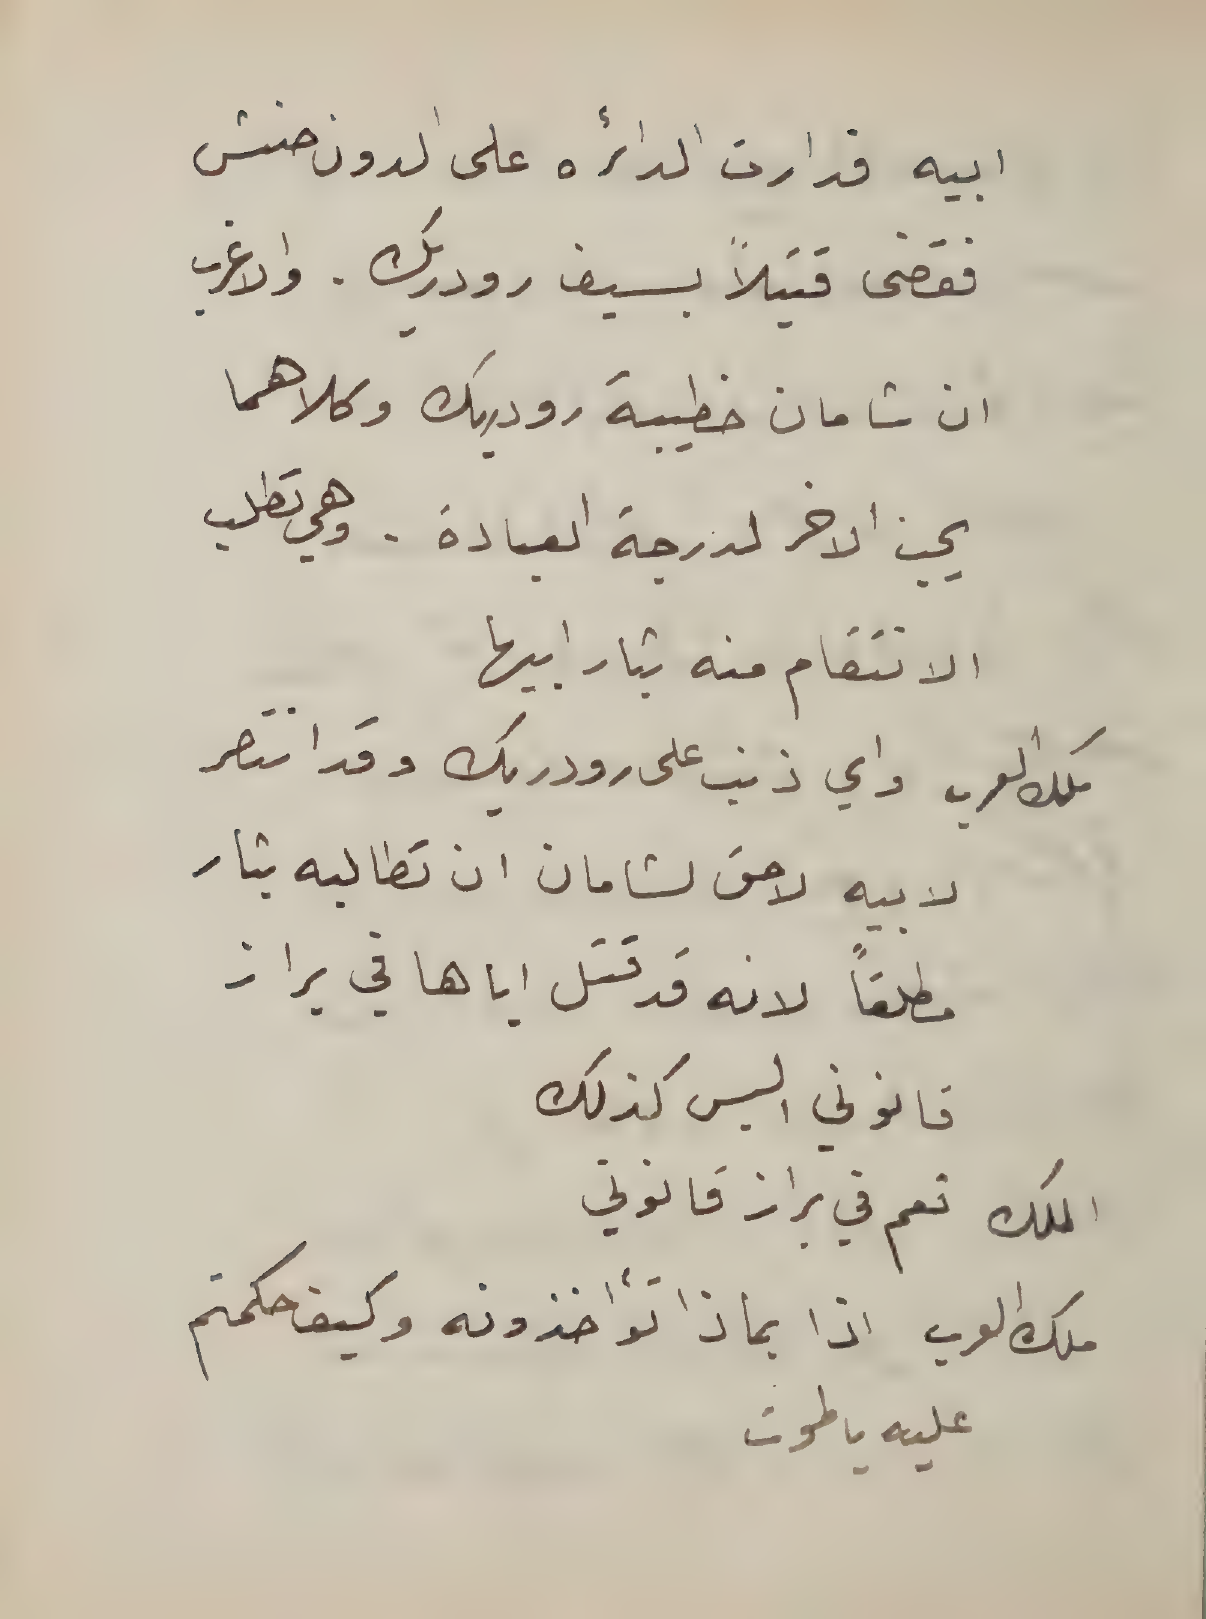 ابيه فدارت الدائره على الدون خنش
فقضى قتيلاً بسيف رودريك . والاغرب
ان شامان خطيبة رودريك وكلاهما
يحب الاخر لدرجة العبادة . وهي تطلب
الانتقام منه بثار ابيها
ملك العرب واي ذنب على رودريك وقد انتصر
لابيه لاحق لشامان ان تطالبه بثار
مطلقاً لانه قد قتل اباها في براز
قانوني اليس كذلك
الملك نعم في براز قانوني
ملك العرب اذا بماذا تؤاخذونه وكيف حكمتم
عليه بالموت